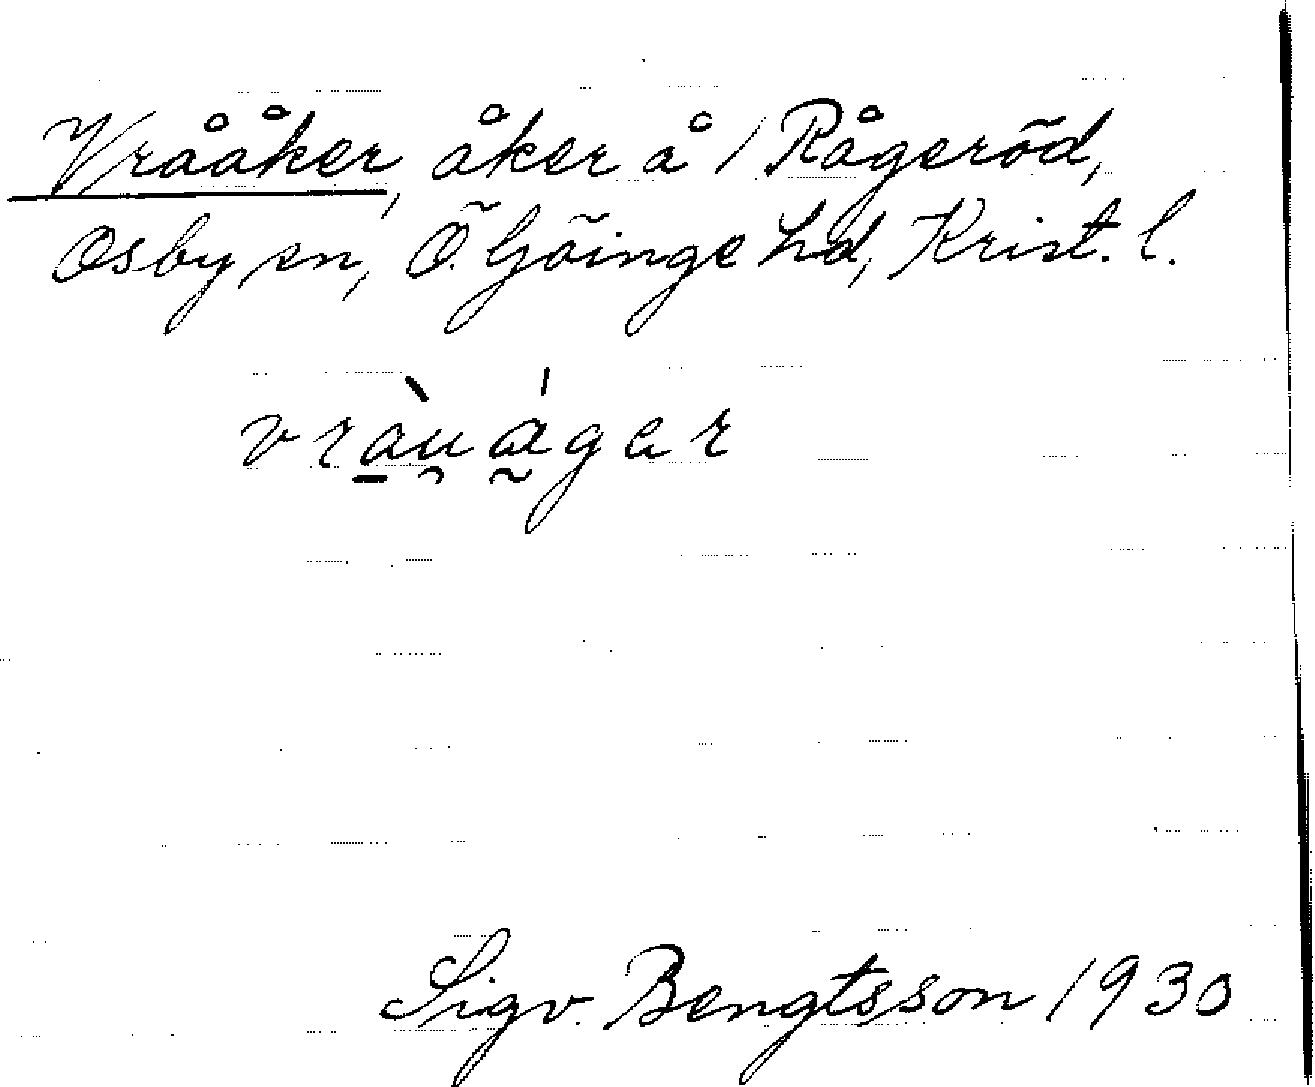 Vrååker, åker å / Rågeröd,
Osby sn, Ö. Göinge hd, Krist. l.
vràu̯ágar
Sigv. Bengtsson 1930